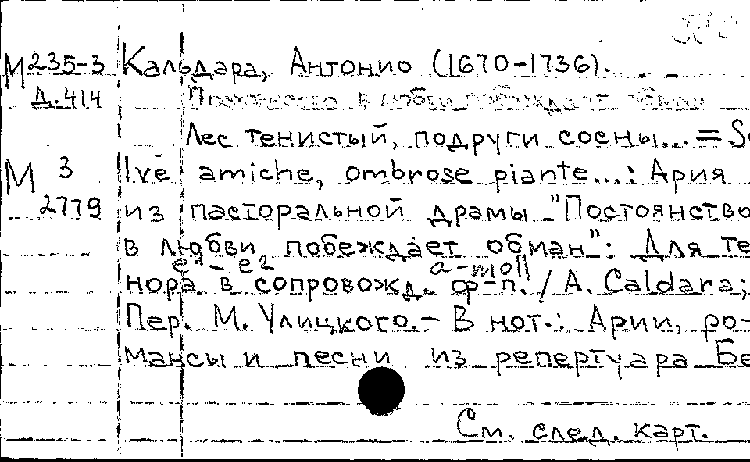 М 235-3 Кальдара, Антонио (1670-1736).
Д. 414 Постоянство в любви побеждает обман
Лес тенистый, подруги сосны... = Se
М 3 lve amiche, ombrose piante...: Ария
2779 из пасторальной драмы "Постоянство
в любви побеждает обман": Для те
e¹ - e² a-moll
нора в сопровожд. ф-п. / A. Caldara;
Пер. М. Улицкого. - В нот.: Арии, ро-
мансы и песни из репертуара Бе
См. след. карт.